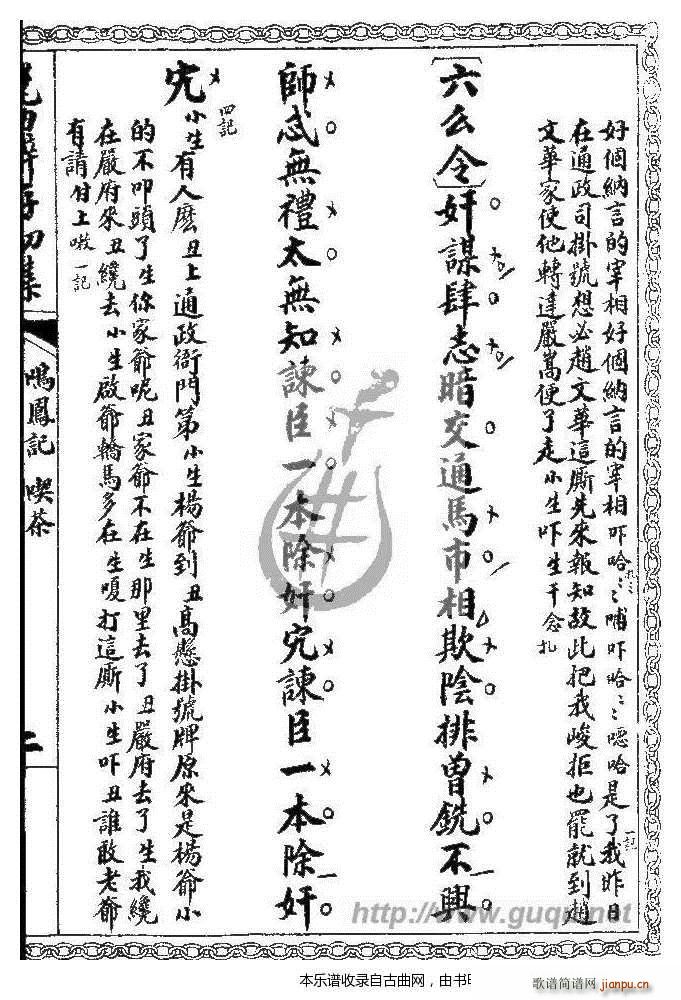 好個納言的宰相好個納言的宰相吓哈〻〻哺吓哈〻〻噁哈是了我昨日
一記
在通政司掛號想必趙文華這厮先來報知故此把我峻拒也罷就到趙
文華家使他轉達嚴嵩便了走小生吓生干念扎
〔六么令〕奸謀肆志暗交通馬市相欺陰排曾銑不興
師忒無禮太無知諫臣一本除奸究諫臣一本除奸
究
四記
小生有人麽丑上通政衙門第小生楊爺到丑高懸掛號牌原來是楊爺小
的不叩頭了生你家爺呢丑家爺不在生那里去了丑嚴府去了生我纔
在嚴府來丑纔去小生啟爺轎馬多在生嗄打這厮小生吓丑誰敢老爺
有請付上嗷一記
鳴鳳記 喫茶
二
http://www.guqu.net
本乐谱收录自古曲网，由书
歌谱简谱网
jianpu.cn